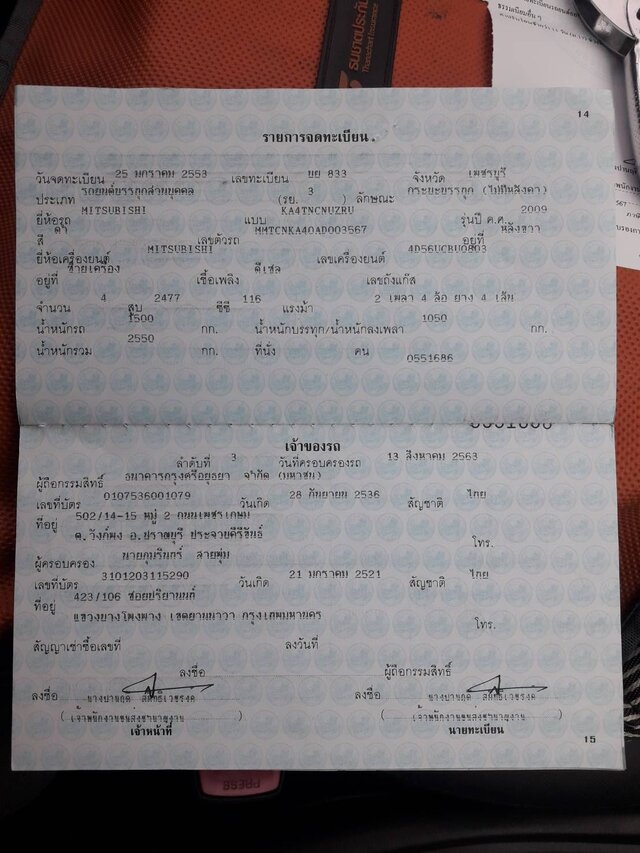 ธนชาตประกันภัย
Thanachart Insurance
ธรรมเนียมอื่น ๆ
14
รายการจดทะเบียน
วันจดทะเบียน 25 มกราคม 2553 เลขทะเบียน 833 จังหวัด เพชรบุรี
ประเภท รถยนต์บรรทุกส่วนบุคคล (รย. 3 ) ลักษณะ กระบะบรรทุก (ไม่มีหลังคา)
ยี่ห้อรถ MITSUBISHI แบบ KA4TNCNUZRU รุ่นปี ค.ศ. 2009
สี ดำ เลขตัวรถ MMTCNKA40AD003567 อยู่ที่ หลังขวา
ยี่ห้อเครื่องยนต์ MITSUBISHI เลขเครื่องยนต์ 4D56UCBU0803
อยู่ที่ ซ้ายเครื่อง เชื้อเพลิง ดีเซล เลขถังแก๊ส
จำนวน 4 สูบ 2477 ซีซี 116 แรงม้า 2 เพลา 4 ล้อ ยาง 4 เส้น
น้ำหนักรถ 1500 กก. น้ำหนักบรรทุก/น้ำหนักลงเพลา 1050 กก.
น้ำหนักรวม 2550 กก. ที่นั่ง คน
0551686
เจ้าของรถ
ลำดับที่ 3 วันที่ครอบครองรถ 13 สิงหาคม 2563
ผู้ถือกรรมสิทธิ์ ธนาคารกรุงศรีอยุธยา จำกัด (มหาชน)
เลขที่บัตร 0107536001079 วันเกิด 28 กันยายน 2536 สัญชาติ ไทย
ที่อยู่ 502/14-15 หมู่ 2 ถนนเพชรเกษม
ต.วังก์พง อ.ปราณบุรี ประจวบคีรีขันธ์ โทร.
ผู้ครอบครอง นายภุมรินทร์ สายพุ่ม
เลขที่บัตร 3101203115290 วันเกิด 21 มกราคม 2521 สัญชาติ ไทย
ที่อยู่ 423/106 ซอยปริยานนท์
แขวงบางโพงพาง เขตยานนาวา กรุงเทพมหานคร โทร.
สัญญาเช่าซื้อเลขที่ ลงวันที่
ลงชื่อ ผู้ถือกรรมสิทธิ์
ลงชื่อ ลงชื่อ
(เจ้าพนักงานขนส่งชำนาญงาน) (เจ้าพนักงานขนส่งชำนาญงาน)
เจ้าหน้าที่ นายทะเบียน
15
PRESS